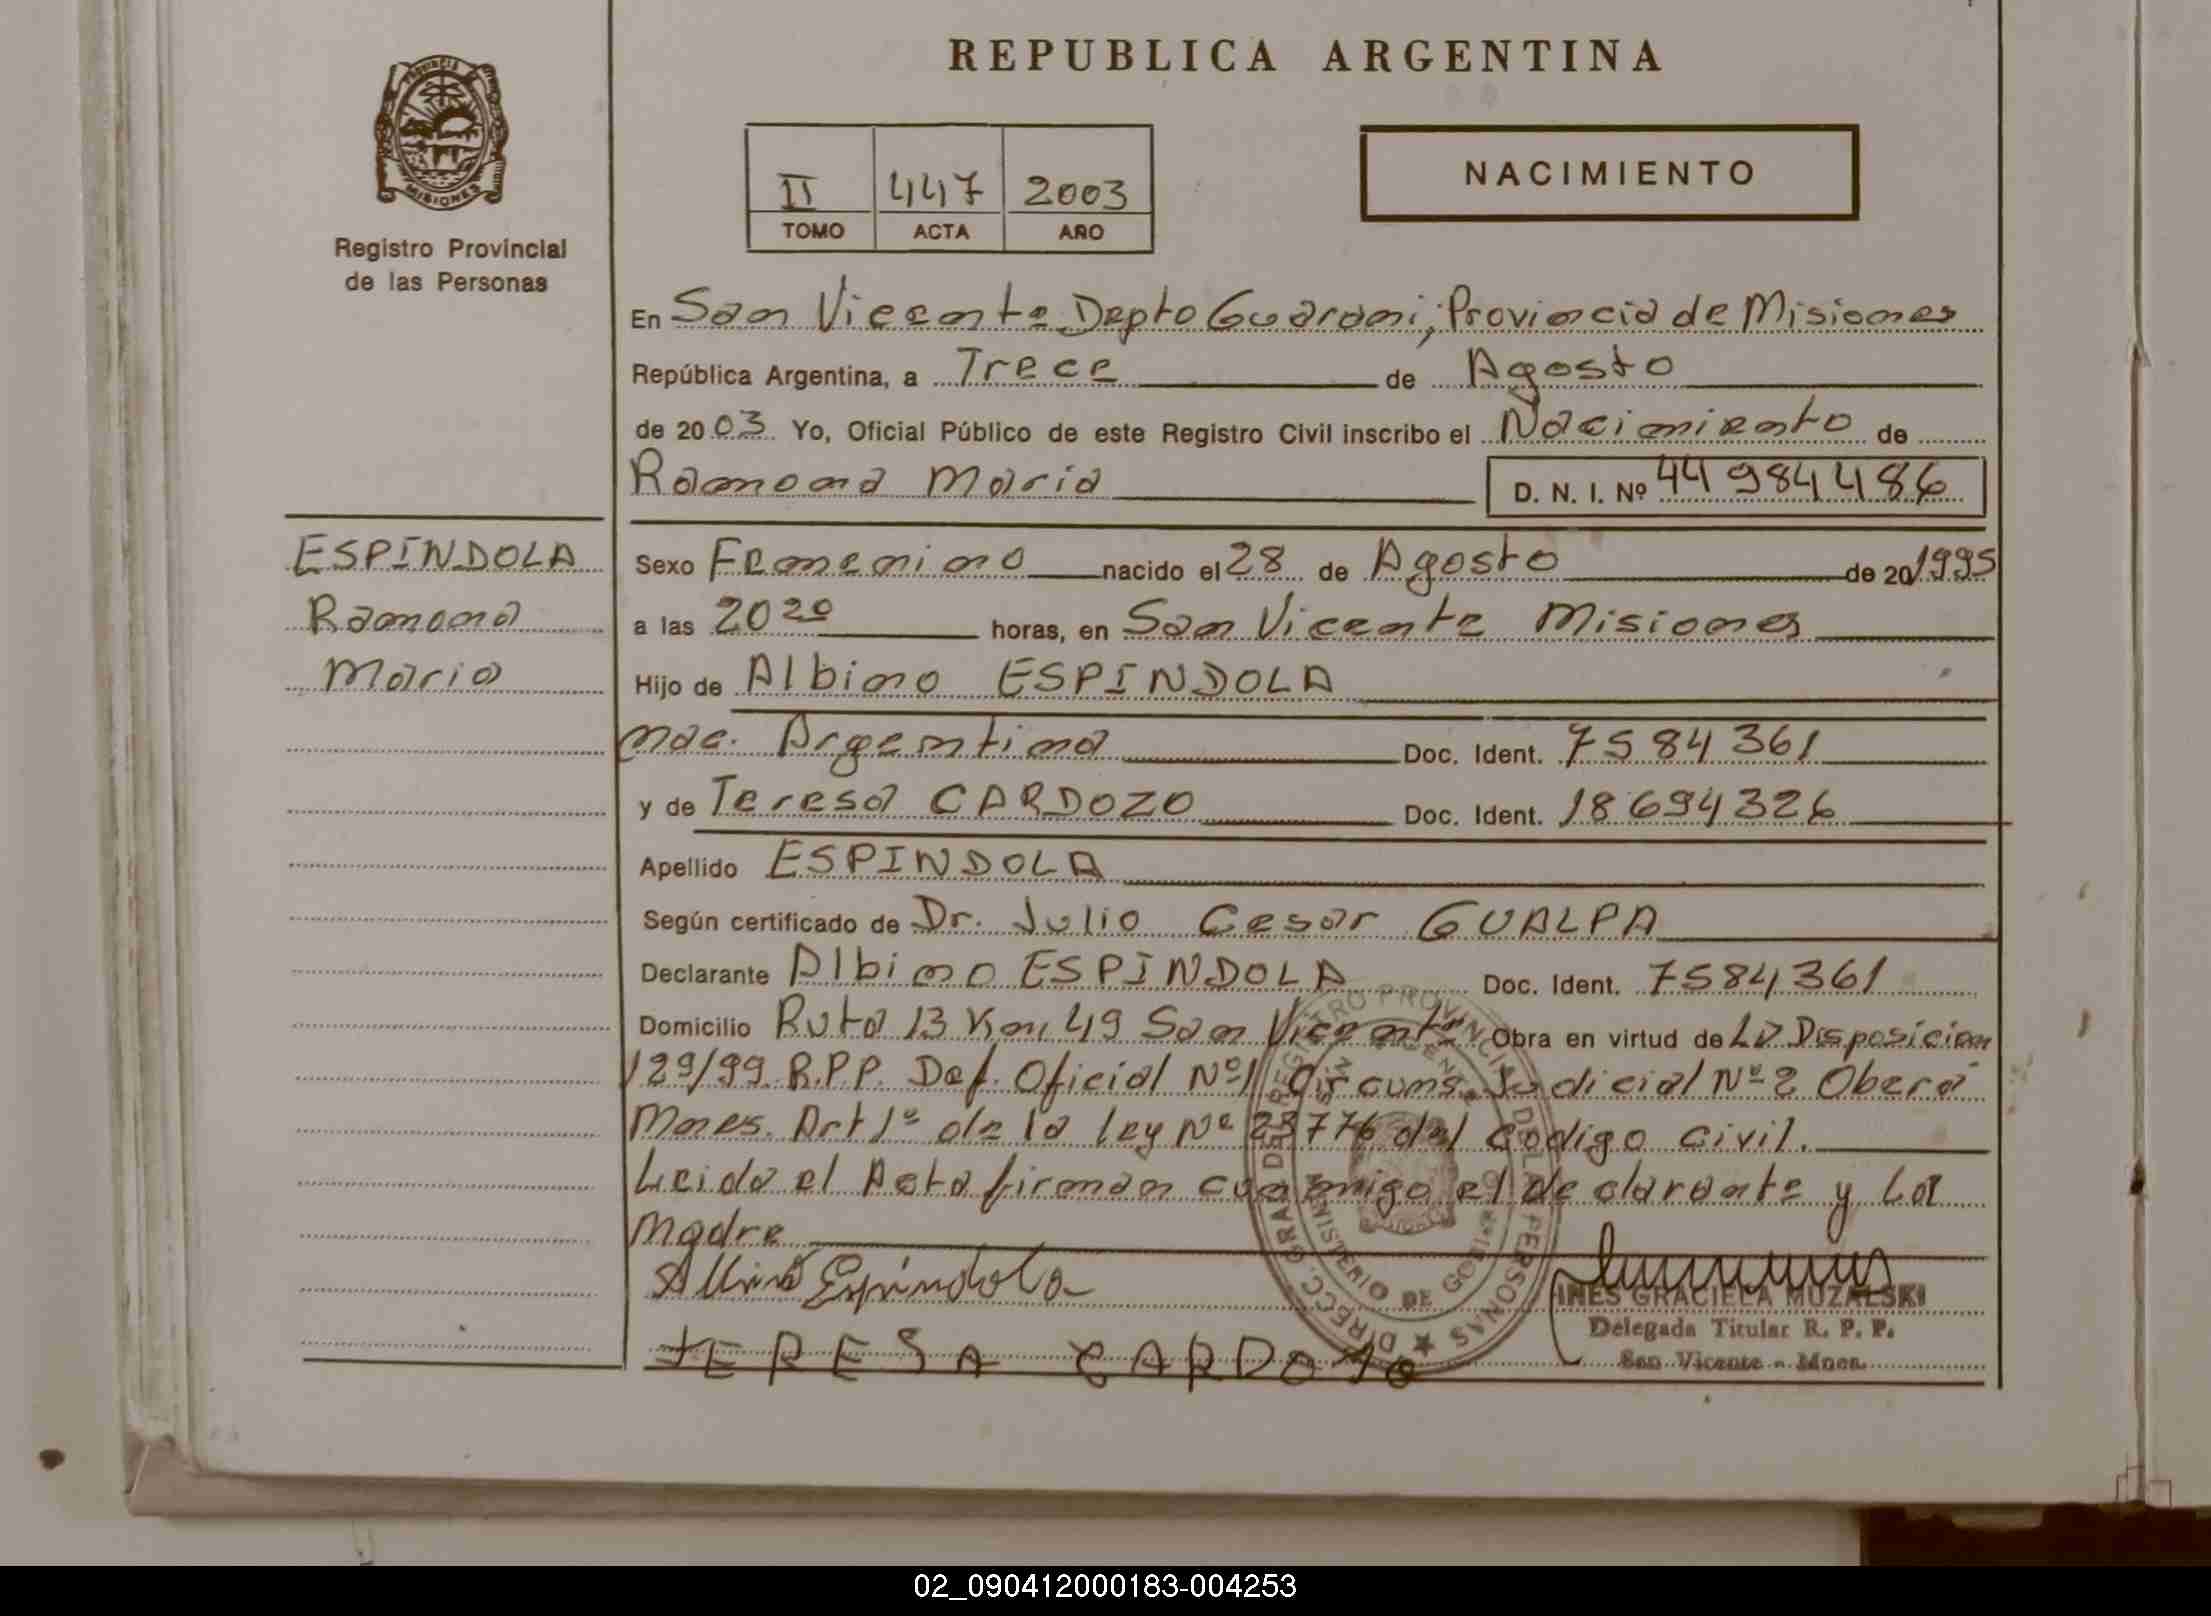 REPUBLICA ARGENTINA
PROVINCIA
MISIONES
Registro Provincial
de las Personas
II 447 2003
TOMO ACTA AÑO
NACIMIENTO
En San Vicente Depto Guarani, Provincia de Misiones
República Argentina, a Trece de Agosto
de 2003 Yo, Oficial Público de este Registro Civil inscribo el Nacimiento de
Ramona Maria D. N. I. Nº 44984486
ESPINDOLA
Ramona
Maria
Sexo Femenino nacido el 28 de Agosto de 20 1995
a las 20 20 horas, en San Vicente Misiones
Hijo de Albino ESPINDOLA
nac. Argentina Doc. Ident. 7584361
y de Teresa CARDOZO Doc. Ident. 18694326
Apellido ESPINDOLA
Según certificado de Dr. Julio Cesar GUALPA
Declarante Albino ESPINDOLA Doc. Ident. 7584361
Domicilio Ruta 13 Km 49 San Vicente Obra en virtud de La Disposicion
129/99 R.P.P. Def. Oficial Nº1 Circuns. Judicial Nº 2 Oberá
Mnes. Art 1º de la ley Nº 23776 del codigo civil.
Leida el Acta firman conmigo el declarante y La
Madre
Albino Espindola
TERESA CARDOZO
DIRECC. GRAL. DEL REGISTRO PROVINCIAL DE LAS PERSONAS
MINISTERIO DE GOBIERNO
INES GRACIELA MUZALSKI
Delegada Titular R. P. P.
San Vicente - Mnes.
02_090412000183-004253